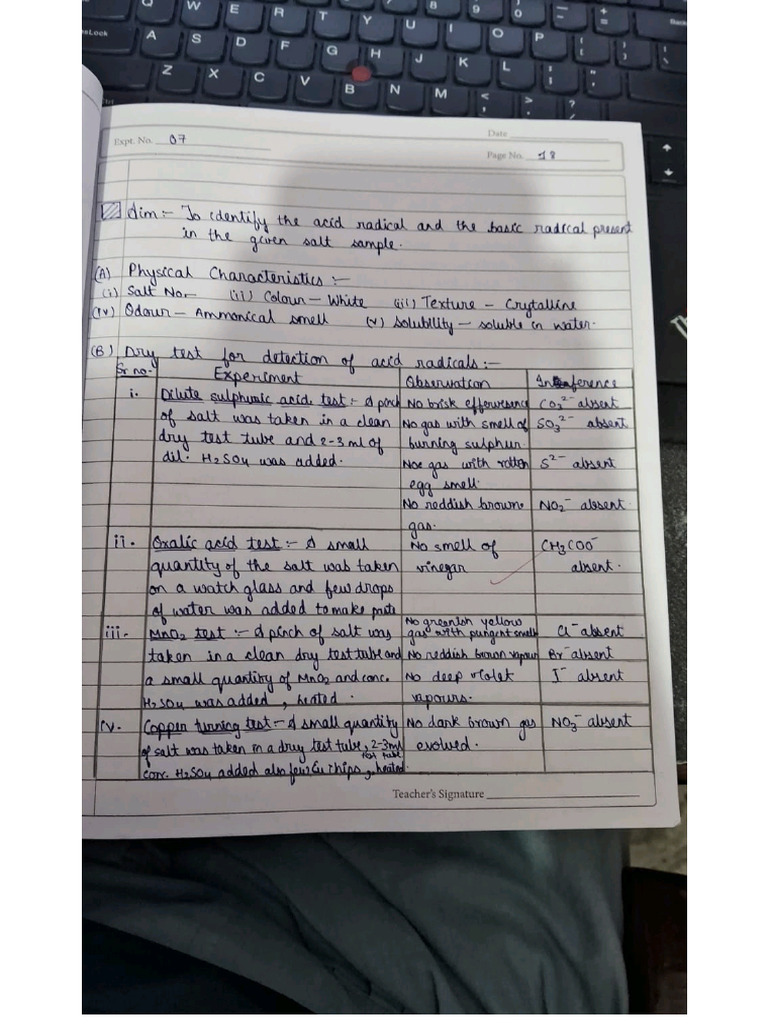 Expt. No. 07
Date
Page No. 18
Aim:- To identify the acid radical and the basic radical present
in the given salt sample.
(A) Physical Characteristics :-
(i) Salt No- (ii) Colour - White (iii) Texture - Crytalline
(iv) Odour - Ammonical smell (v) Solubility - soluble in water.
(B) Dry test for detection of acid radicals:-
Sr no. Experiment Observation Inference
i. Dilute sulphuric acid test:- A pinch No brisk effervesence CO₃²⁻ absent
of salt was taken in a clean No gas with smell of SO₃²⁻ absent
dry test tube and 2-3 ml of burning sulphur.
dil. H₂SO₄ was added. No gas with rotten S²⁻ absent
egg smell.
No reddish brown NO₂⁻ absent
gas.
ii. Oxalic acid test :- A small No smell of CH₃COO⁻
quantity of the salt was taken vinegar absent.
on a watch glass and few drops
of water was added to make paste
iii. MnO₂ test :- A pinch of salt was No greenish yellow gas with pungent smell Cl⁻ absent
taken in a clean dry test tube and No reddish brown vapour Br⁻ absent
a small quantity of MnO₂ and conc. No deep violet I⁻ absent
H₂SO₄ was added, heated. vapours.
iv. Copper turning test:- A small quantity No dark brown gas NO₃⁻ absent
of salt was taken in a dry test tube, 2-3ml evolved.
conc. H₂SO₄ added also few Cu chips, heated
Teacher's Signature